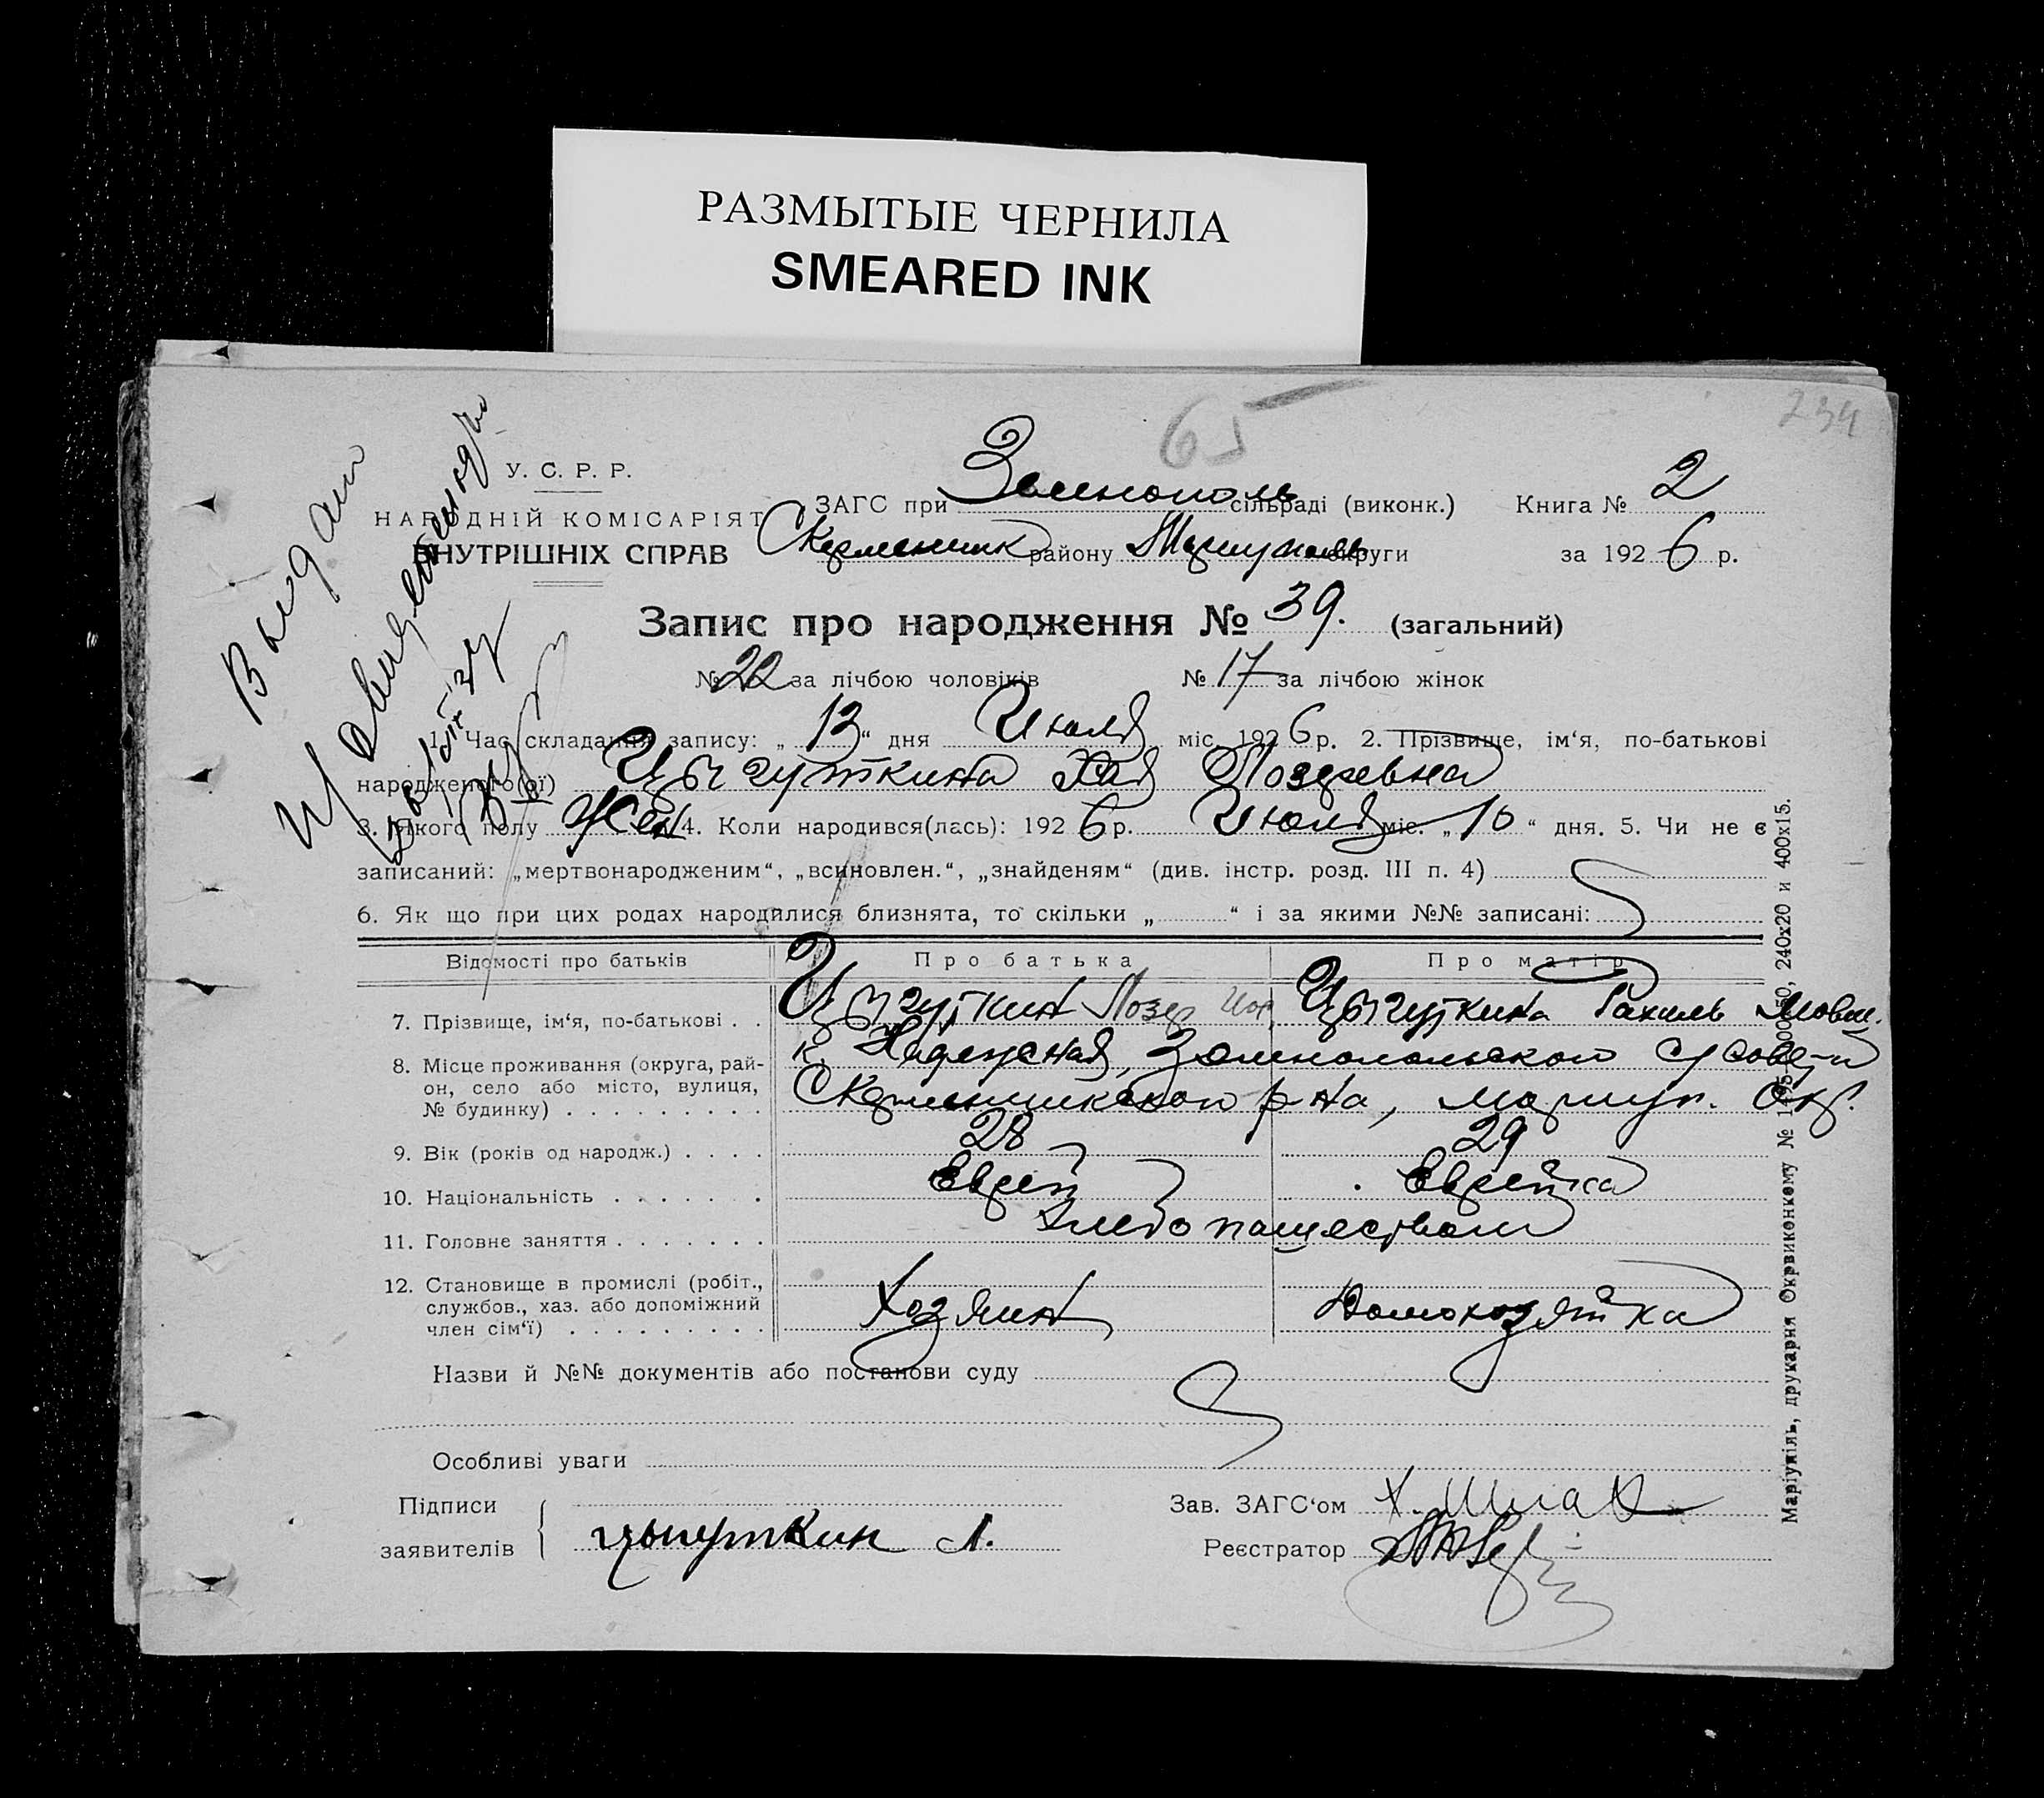 РАЗМЫТЫЕ ЧЕРНИЛА
SMEARED INK
65
234
У. С. Р. Р.
НАРОДНІЙ КОМІСАРІЯТ
ВНУТРІШНІХ СПРАВ
ЗАГС при Зеленополь сільраді (виконк.) Книга № 2
району Мариуполь округи за 1926 р.
Запис про народження № 39. (загальний)
№ 22 за лічбою чоловіків № 17 за лічбою жінок
1. Час складання запису: „13“ дня Июля міс. 1926 р. 2. Прізвище, ім‘я, по-батькові
народженого(ої) Цыгуткина Хая
3. Якого полу Жен 4. Коли народився(лась): 1926 р. Июля міс. „10“ дня. 5. Чи не є
записаний: „мертвонародженим“, „всиновлен.“, „знайденям“ (див. інстр. розд. III п. 4)
6. Як що при цих родах народилися близнята, то скільки „ “ і за якими №№ записані:
Відомості про батьків Про батька Про матір
7. Прізвище, ім‘я, по-батькові . . Цыгуткин Цыгуткина Рахиль Мовш.
8. Місце проживання (округа, рай-
он, село або місто, вулиця,
№ будинку) . . . . . . . . .
к. Надежная,
р-на, Мариуп. Окр.
9. Вік (років од народж.) . . . . 28 29
10. Національність . . . . . . . Еврей Еврейка
11. Головне заняття . . . . . . . Хлебопашеством
12. Становище в промислі (робіт.,
службов., хаз. або допоміжний
член сім‘ї) . . . . . . . . .
Хозяин Домохозяйка
Назви й №№ документів або постанови суду
Особливі уваги
Підписи
заявителів
цыгуткин Л.
Зав. ЗАГС‘ом
Реєстратор
Выдан
Маріупіль, друкарня Окрвиконкому
240х20 и 400х15.